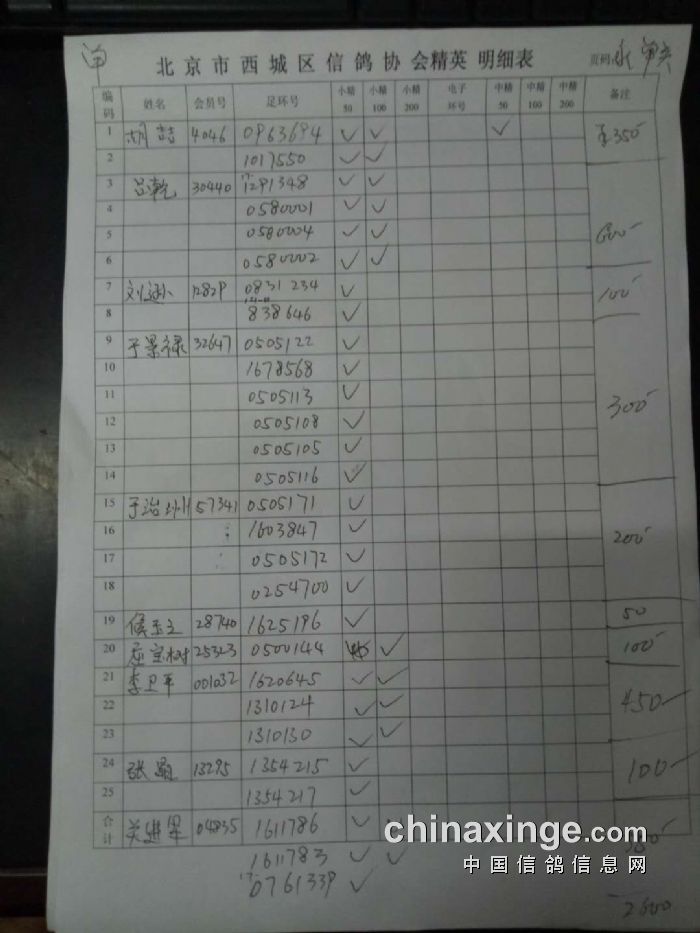 单
北京市西城区信鸽协会精英 明细表
页码
编码 姓名 会员号 足环号 小精50 小精100 小精200 电子环号 中精50 中精100 中精200 备注
1 胡喆 4046 0963694 ✓ ✓ ✓ 350
2 1017550 ✓ ✓
3 吕乾 30440 1291348 ✓ ✓
4 0580001 ✓ ✓
5 0580004 ✓ ✓
6 0580002 ✓ ✓ 600
7 12829 0831234 ✓ 100
8 838646 ✓
9 于景禄 32647 0505122 ✓
10 1678568 ✓
11 0505113 ✓ 300
12 0505108 ✓
13 0505105 ✓
14 0505116 ✓
15 于治 57341 0505171 ✓
16 1603847 ✓ 200
17 0505172 ✓
18 0254700 ✓
19 侯玉 28740 1625196 ✓ 50
20 宝树 25323 0500144 ✓ 100
21 李卫平 001032 1620645 ✓ ✓
22 1310124 ✓ ✓ 450
23 1310130 ✓ ✓
24 张 13295 1354215 ✓ 100
25 1354217 ✓
合计 关进 04835 1611786 ✓
1611783 ✓ ✓
0761339 ✓
2600
chinaxinge.com
中国信鸽信息网